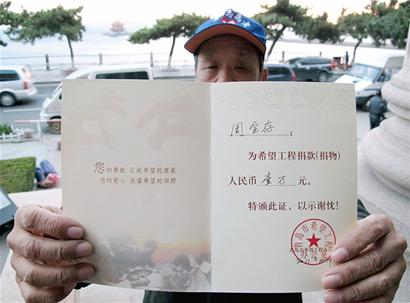 您的奉献 汇成希望的源泉
您的爱心 浇灌希望的田野
周宝存：
为希望工程捐款(捐物)
人民币 壹万 元。
特颁此证，以示谢忱！
青岛市希望工程